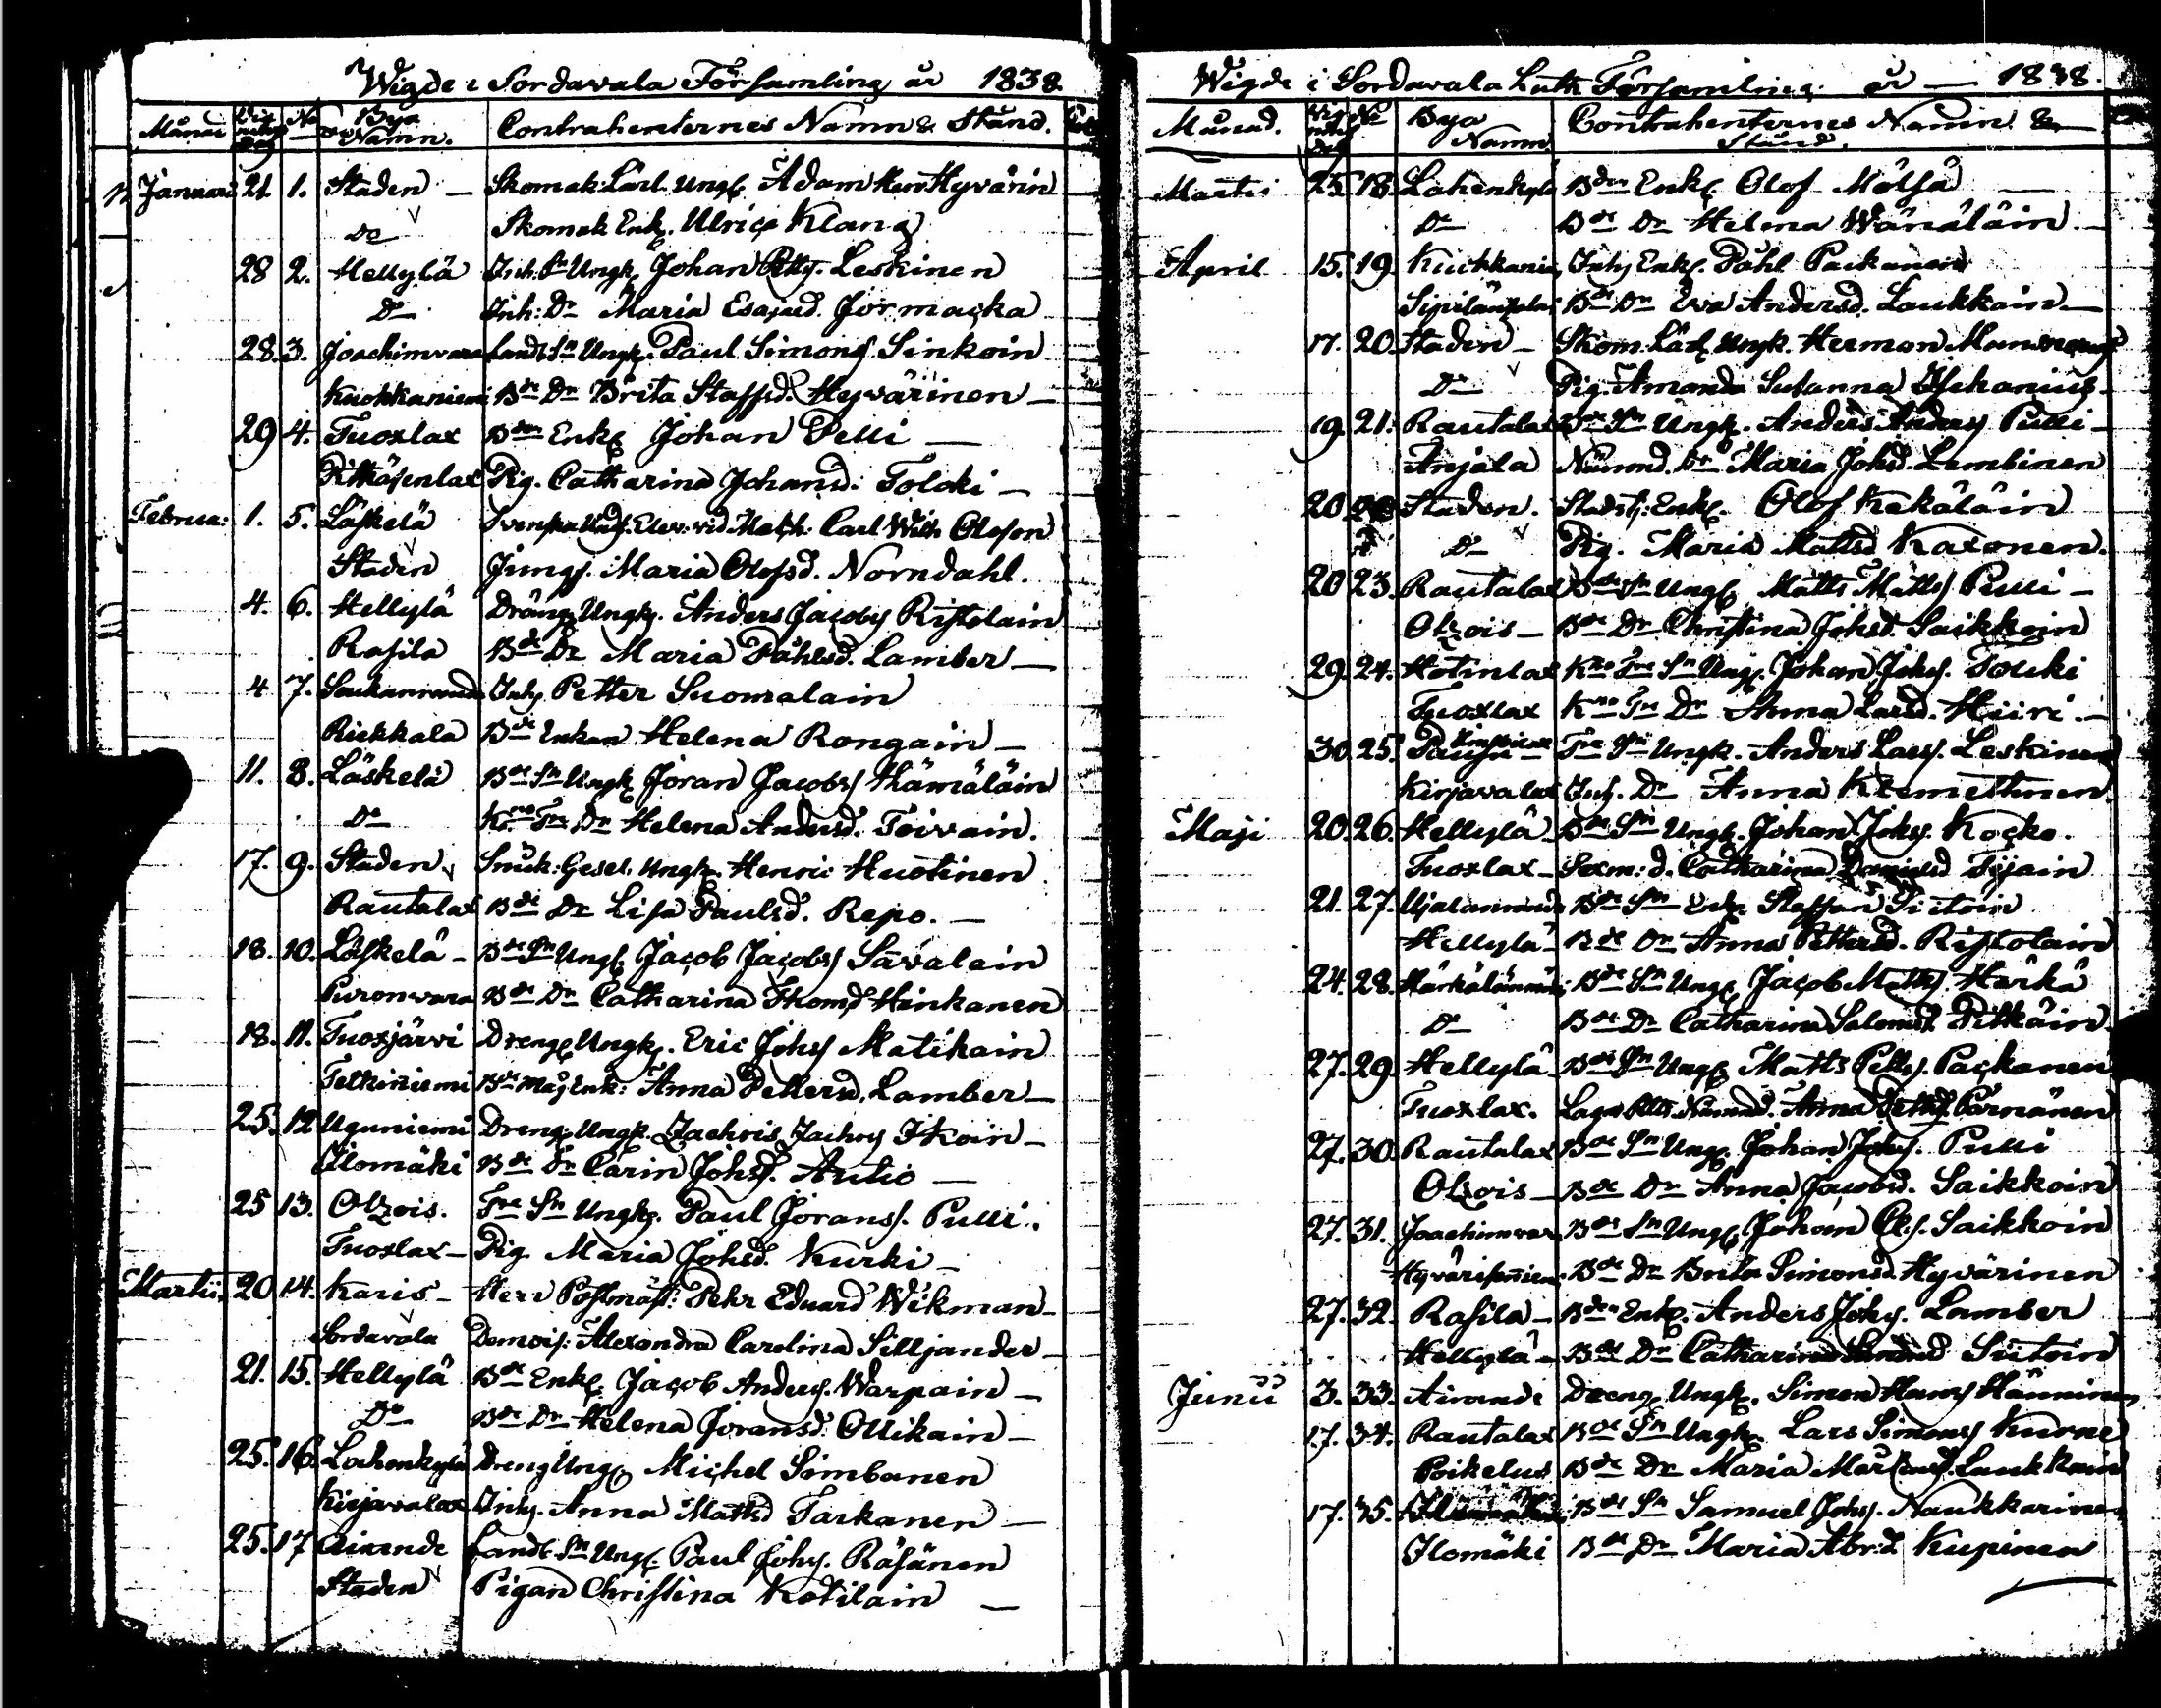 Wigde i Sordavala Församling år 1838.
Månad Vig nings Dag No Bya Namn. Contrahenternes Namn & Stånd.
Januari 21. 1. Staden — Skomak: Lärl. Ungk. Adam Herm Hyvärin
Do Skomak Enk. Ulrica Klang
28 2. Hellylä Inh. Sn Ungk. Johan Petts. Leskinen
Do Inh: Dr Maria Esajsd. Jormacka
28. 3. Joachimvara Landb. Sn Ungk. Paul Simons Sinkoin
Kuokkaniemi Bde Dr Brita Staffsd. Hyvärinen —
29 4. Tuoxlax Bden Enkl Johan Pelli —
Pitkäjenlax Pig. Catharina Johansd. Toloki —
Februa: 1. 5. Läskelä Svenska Carl Wilh Olofson
Staden Jungf. Maria Olofsd. Norndahl.
4. 6. Hellylä Dräng Ungk. Anders Jacobs Ristolain
Rasila Bde Dr Maria Påhlsd. Lamber —
4 7. Inh. Petter Suomalain
Riekkala Bde Enkan Helena Rongain —
11. 8. Läskelä Bde Sn Ungk Joran Jacobs Hämäläin
Do Kno Frs Dr Helena Andersd. Toivain.
17. 9. Staden Snick: Gesel. Ungk. Henric Huotinen
Rautalax Bde Dr Lisa Paulsd. Repo. —
18. 10. Läskelä — Bde Sn Ungk Jacob Jacobs Savalain
Puronvara Bde Dr Catharina Thomsd Hinkanen
18. 11. Tuoxjärvi Dreng Ungk. Eric Johs Matikain
Telkiniemi Bde Mås Enk: Anna Pettersd. Lamber —
25. 12 Uguniemi Dreng Ungk. Zachris Zachrs Ikoin —
Ilomäki Bde Dr Carin Johsd. Autio —
25 13. Otzois. Frs Sn Ungk. Paul Jorans. Pulli.
Tuoxlax — Pig. Maria Johsd. Kurki —
Martii. 20 14. Karis — Herr Postmäst: Pehr Eduard Wikman —
Sordavala Demois: Alexandra Carolina Silljander —
21. 15. Hellylä Bde Enkl. Jacob Anders. Warpain —
Do Bde Dr Helena Joransd. Ollikain —
25. 16. Lahenkylä Dreng Ungk Michel Simbanen
Kirjavalax Inh. Anna Mattsd Tarkanen —
25. 17 Airande Landb. Sn Ungk. Paul Johs. Räsänen
Staden Pigan Christina Kotilain —
Wigde i Sordavala Luth Församling år — 1838.
Månad. Vig nings Dag No Bya Namn Contrahenternes Namn & Stånd.
Martii 25. 18. Lahenkylä Bden Enkl. Olof Mölsä —
Do Bde Dr Helena Wänäläin —
April 15. 19. Kuokkaniemi Inh. Enkl. Påhl Packanen
Bde Dr Eva Andersd. Laukkain —
17. 20. Staden — Skom. Lärl. Ungk. Herman
Do Pig. Amanda Susanna
19. 21. Rautalax Bde Sn Ungk. Anders Anders Pulli —
Anjala Nämnd. Dr Maria Johsd. Lembinen
20 22 Staden. Stadsb: Enkl. Olof Kekäläin
Do Pig. Maria Mattsd Kaxonen.
20 23. Rautalax Bde Sn Ungk Matts Matts Pulli —
Otzois — Bde Dr Christina Johsd. Saikkoin
29. 24. Hotinlax Kno Frs Sn Ungk. Johan Johs. Touki
Tuoxlax Kno Frs Dr Anna Larsd. Hiiri. —
30. 25. Frs Sn Ungk. Anders Lars. Leskinen
Kirjavalax Inh. Dr Anna Kemettinen
Maji 20. 26. Hellylä — Bde Sn Ungk. Johan Johs. Kocko.
Tuoxlax — Sexm: d. Catharina Danielsd Tijain
21. 27. Ujalanranda Bde Sn Enkl Staffan Siitoin
Hellylä — Bde Dr Anna Pettersd. Ristolain
24. 28. Bde Sn Ungk Jacob Matts Härkä
Do Bde Dr Catharina Salomsd. Pitkäin
27. 29 Hellylä — Bde Sn Ungk Matts Petts. Packanen
Tuoxlax. Anna Pettsd. Pärnänen
27. 30. Rautalax Bde Sn Ungk. Johan Johs. Pulli
Otzois — Bde Dr Anna Jacobsd. Saikkoin
27. 31. Joachimvara Bde Sn Ungk Johan Ols. Saikkoin
Bde Dr Brita Simonsd. Hyvärinen
27. 32. Rasila — Bden Enkl. Anders Johs. Lamber
Hellylä — Bde Dr Catharina Siitoin
Junii 3. 33. Airande Dreng Ungk. Simon Hans Hänninen
17. 34. Rautalax Bde Sn Ungk. Lars Simons Kurne
Poikelus Bde Dr Maria Laukkain
17. 35. Bde Sn Samuel Johs. Naukkarinen
Ilomäki Bde Dr Maria Abr:d Kupinen